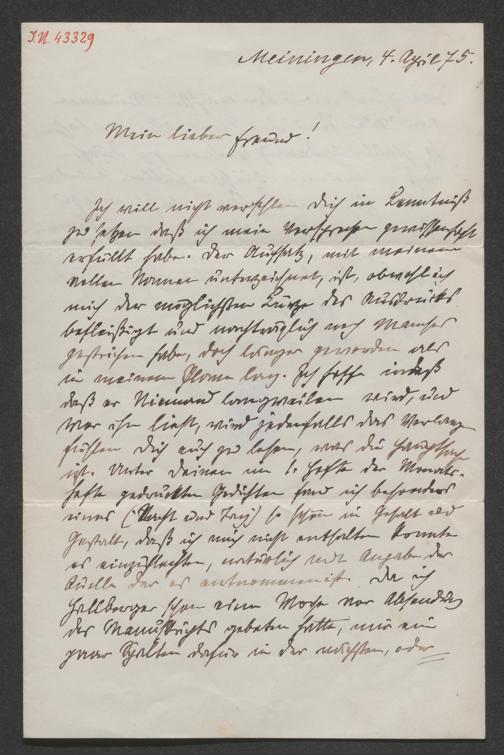 J.N. 43329
Meiningen, 4. April 75.
Mein lieber Freund!
Ich will nicht verfehlen Dich in Kenntniß
zu setzen daß ich mein Versprechen gewissenhaft
erfüllt habe. Der Aufsatz, mit meinem
vollen Namen unterzeichnet, ist, obwohl ich
mich der möglichsten Kürze des Ausdrucks
befleißigt und nachträglich noch Manches
gestrichen habe, doch länger geworden als
in meinem Plane lag. Ich hoffe indeß
daß er Niemand langweilen wird, und
wer ihn liest, wird jedenfalls das Verlangen
fühlen Dich auch zu lesen, was die Hauptsache
ist. Unter Deinen im Hefte der Monats-
hefte gedruckten Gedichten fand ich besonders
eines (Nacht und Tag) so schön in Gehalt und
Gestalt, daß ich mich nicht enthalten konnte
es einzuflechten, natürlich mit Angabe der
Quelle der es entnommen ist. Da ich
Hallberger schon eine Woche vor Absendung
des Manuskripts gebeten hatte, mir ein
paar Spalten dafür in der nächsten, oder